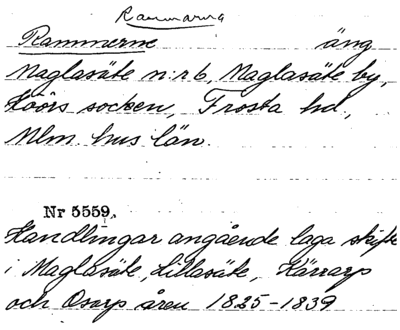 Rammarna
Rammerne äng
Maglasäte nr 6, Maglasäte by,
Höörs socken, Frosta hd,
Mlm. hus län.
Nr 5559.
Handlingar angående laga skifte
i Maglasäte, Lillasäte, Kärrarp
och Osarp åren 1825-1839